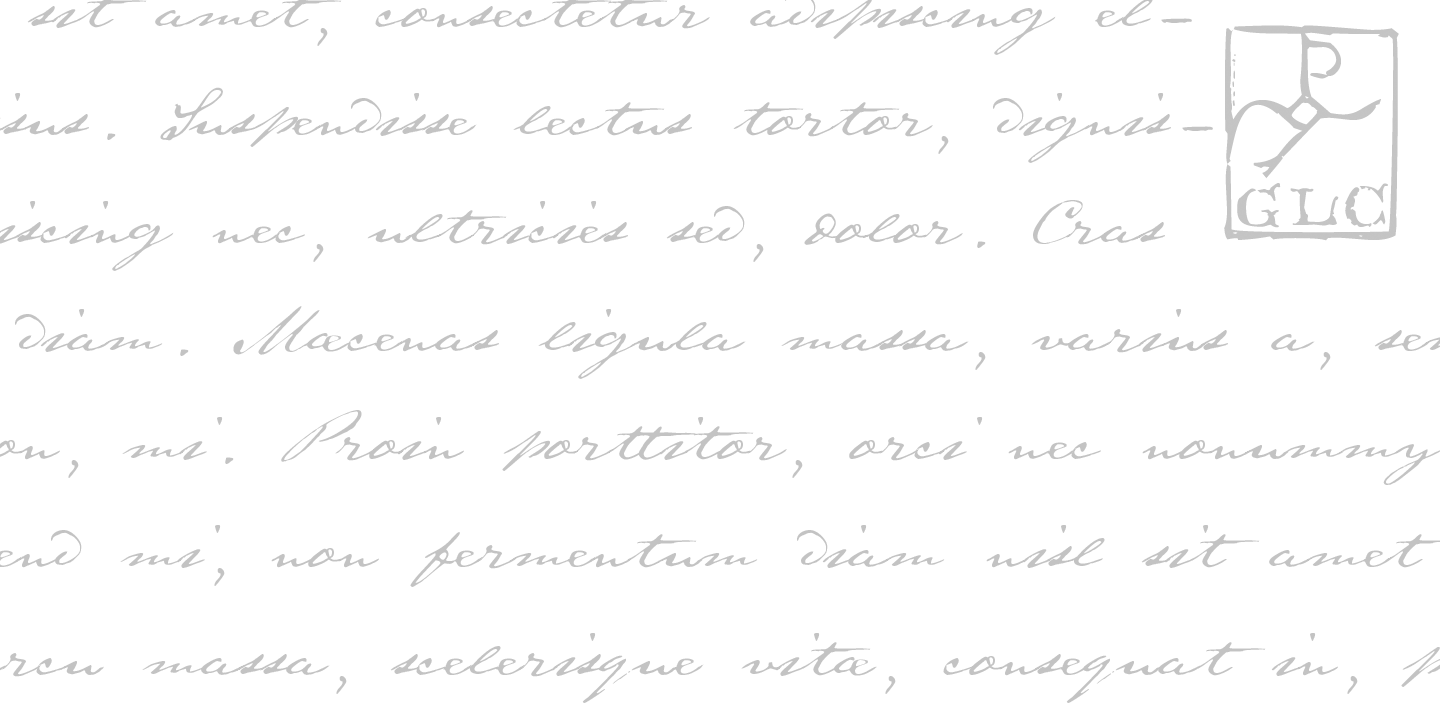 sit amet, consectetur adipiscing el-
isus. Suspendisse lectus tortor, dignis-
iscing nec, ultricies sed, dolor. Cras
diam. Mæcenas ligula massa, varius a, sem
on, mi. Proin porttitor, orci nec nonummy
end mi, non fermentum diam nisl sit amet
rcu massa, scelerisque vitæ, consequat in, p
P
GLC